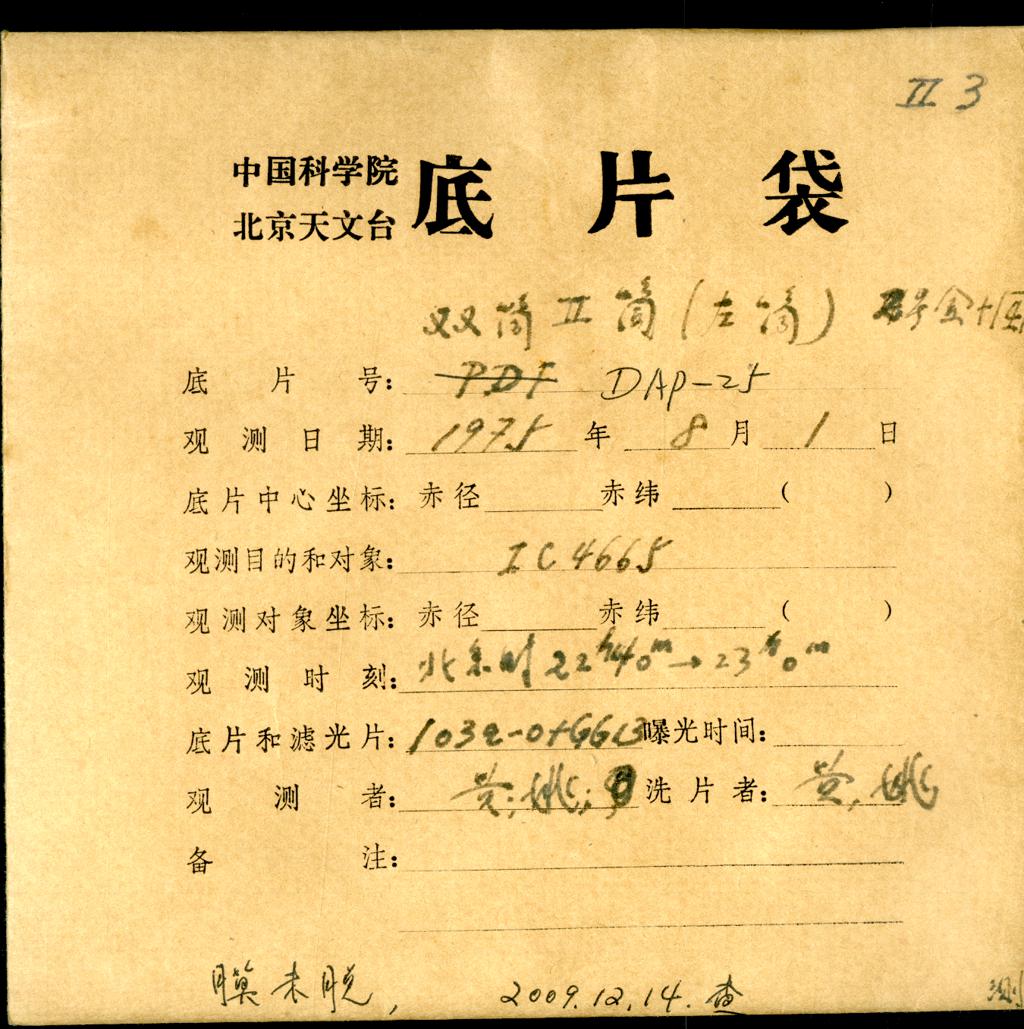 II 3
中国科学院 底片袋
北京天文台
双筒II筒(左筒)
底片号: PDI DAP-25
观测日期: 1975 年 8 月 1 日
底片中心坐标: 赤径 赤纬 ( )
观测目的和对象: IC4665
观测对象坐标: 赤径 赤纬 ( )
观测时刻: 北京时 22h40m→23h0m
底片和滤光片: 103a-O+GG13 曝光时间:
观测者: 黄; 姚; 洗片者: 黄, 姚
备注:
膜未脱, 2009.12.14. 查
测